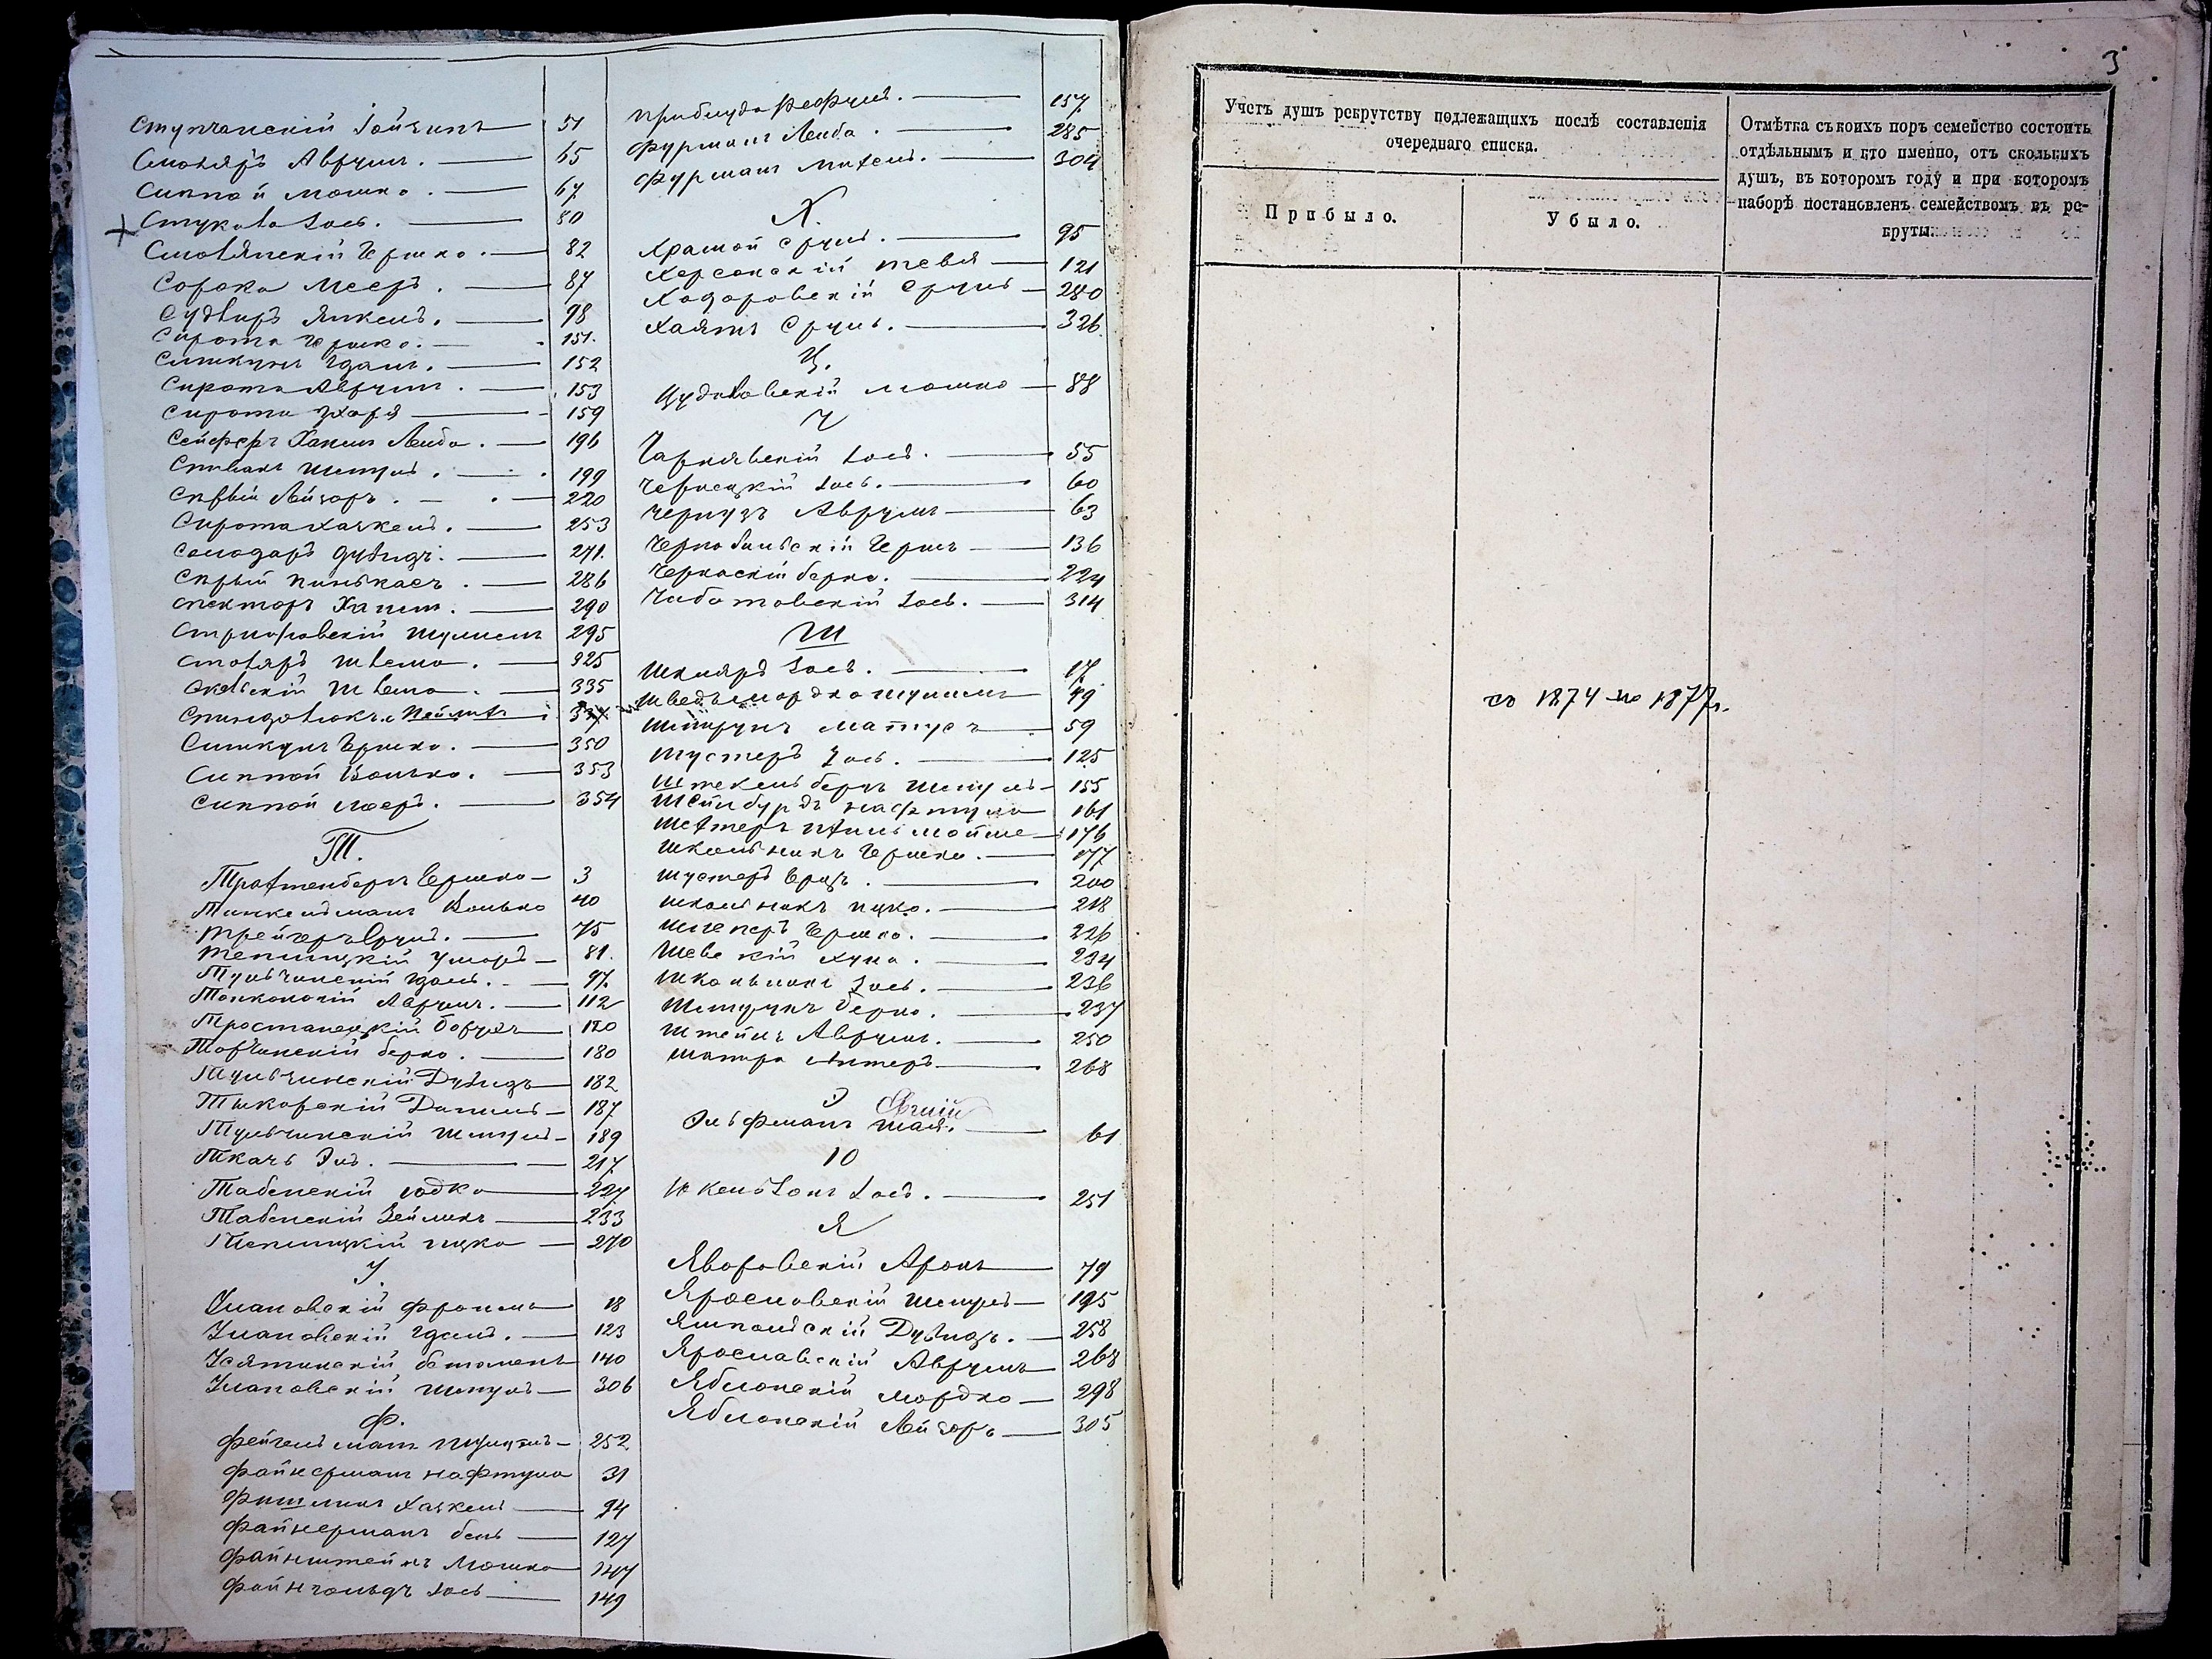 Ступчанскій 51
Столяръ Аврумъ. 65
Сиппой Мошко. 67
Стукало Іось. 80
Смолянскій Гершко. 82
Сорока Мееръ. 87
Судьиръ Янкель. 98
Сирота Гершко. 151.
Сишкунъ Гдаль. 152
Сирота Аврумъ. 153
Сирота Ухоря 159
Сейферъ Хаимъ Лейба. 196
Спивакъ Шмуль. 199
Сирый Лейзоръ. 220
Сирота Хаскель. 253
Солодаръ Дувидъ. 271.
Сѣрый Пинькасъ. 286
Спекторъ Хаимъ. 290
295
Столяръ Шлема. 325
Шлема. 335
Сишкунъ Гершко. 350
Сиппой Волько. 353
Сиппой Мееръ. 354
Т.
Трахтенбергъ Гершко 3
Тинкельманъ Волько 40
Трейгеръ Сруль. 75
Теплицкій 81.
Тульчинскій Гдаль. 97.
Аврумъ. 112
Тростанецкій Борухъ 120
Торчинскій Берко. 180
Тульчинскій Дувидъ 182
Тикорскій Данель 187
Тульчинскій Шмуль 189
Ткачъ Эль. 217.
Табенскій Іодко 227.
Табенскій Зейликъ 233
Теплицкій Ицко 270
У.
Улановскій Фроимъ 18
Улановскій Гдаль. 123
Усятинскій 140
Улановскій Шмуль 306
Ф.
Фейгельманъ 252
Файнерманъ Нафтула 31
Фишликъ Хаскель 94
Файнерманъ Бень 127
Файнштейнъ Мошко 147
Файнгольдъ Іось 149
Прибиуда 157.
Фурманъ Лейба. 285
Фурманъ Михель. 304
Х.
Храмой Сруль. 95
Херсонскій Тевья 121
Ходоровскій Сруль 280
Хаятъ Сруль. 326
Ц.
Цудиковскій Мошко 88
Ч
Чарнявскій Іось. 55
Чернецкій Іось. 60
Чернузъ Аврумъ 63
Чернобильскій Гершъ 136
Черкаскій Берко. 224
Чаботовскій Іось. 314
Ш
Шкляръ Іось. 17.
Шведъ Мордко Шулимъ 49
Матусъ 59
Шустеръ Іось. 125
Штекельбергъ Шмуль 155
Шейнбурдъ Нафтула 161
Мойше 176
Школьникъ Гершко. 177
Шустеръ Герцъ. 200
Школьникъ Ицко. 218
Шпекеръ Гершко. 226
Шевскій Хуна. 234
Школьникъ Іось. 236
Шмурукъ Берко. 237
Штейнъ Аврумъ. 250
Шапира Антеръ 268
Э
Эльфманъ Шая. 61
Ю
Юкельзонъ Іось. 251
Я
Яворовскій Аронъ 79
Ярославскій Шмуль 195
Ямпольскій Дувидъ. 258
Ярославскій Аврумъ 268
Яблонскій Мордко 298
Яблонскій Лейзоръ 305
3
Учетъ душъ рекрутству подлежащихъ послѣ составленія
очереднаго списка.
Прибыло.
Убыло.
Отмѣтка съ коихъ поръ семейство состоитъ
отдѣльнымъ и кто именно, отъ сколькихъ
душъ, въ которомъ году и при которомъ
наборѣ постановленъ семействомъ въ ре-
круты.
со 1874 по 1877г.